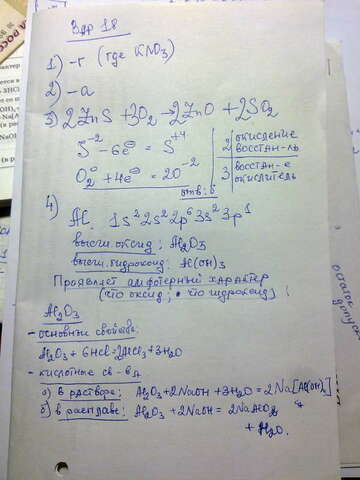 Вар 18
1) - г (где KNO₃)
2) - а
3) 2ZnS + 3O₂ → 2ZnO + 2SO₂
S⁻² - 6e = S⁺⁴ | 2 | окисление восстан-ль
O₂⁰ + 4e = 2O⁻² | 3 | восстан-е окислитель
отв: 6
4)
Al 1s² 2s² 2p⁶ 3s² 3p¹
высш. оксид: Al₂O₃
высш. гидроксид: Al(OH)₃
Проявляет амфотерный характер
(что оксид, что гидроксид)
Al₂O₃
- основные свойства
Al₂O₃ + 6HCl = 2AlCl₃ + 3H₂O
- кислотные св-ва
а) в растворе: Al₂O₃ + 2NaOH + 3H₂O = 2Na[Al(OH)₄]
б) в расплаве: Al₂O₃ + 2NaOH = 2NaAlO₂
+ H₂O.